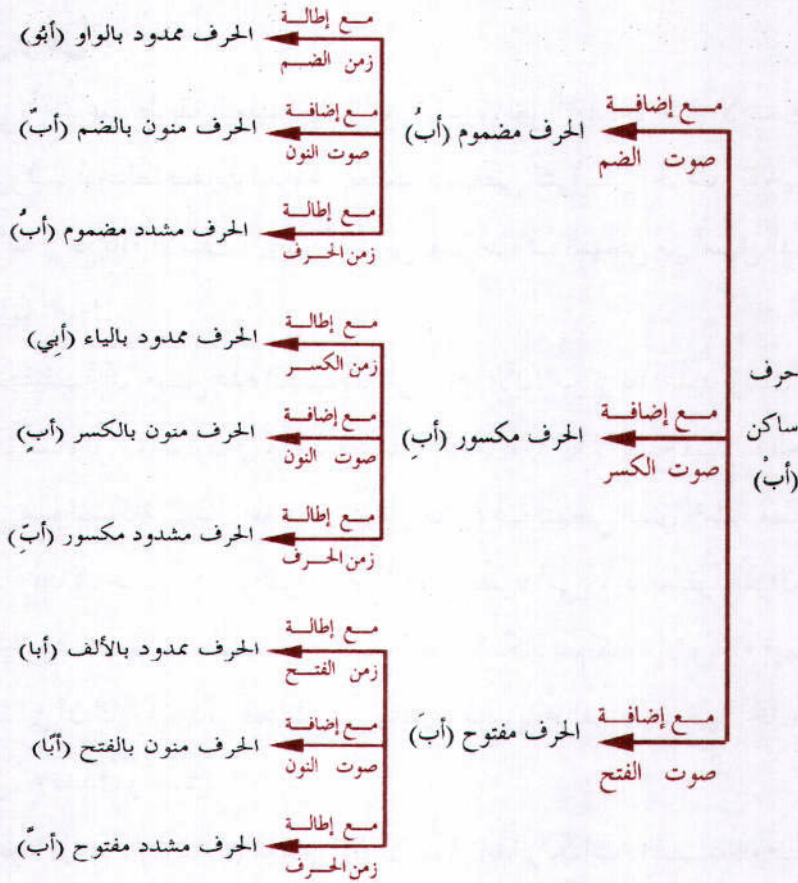 حرف
ساكن
(أبْ)
مــع إضافــة
صوت الضم
الحرف مضموم (أبُ)
مــع إطالــة
زمن الضــم
الحرف ممدود بالواو (أبُو)
مــع إضافــة
صوت النون
الحرف منون بالضم (أبٌ)
مــع إطالــة
زمن الحــرف
الحرف مشدد مضموم (أبُّ)
مــع إضافــة
صوت الكسر
الحرف مكسور (أبِ)
مــع إطالــة
زمن الكســر
الحرف ممدود بالياء (أبِي)
مــع إضافــة
صوت النون
الحرف منون بالكسر (أبٍ)
مــع إطالــة
زمن الحــرف
الحرف مشدود مكسور (أبِّ)
مــع إضافــة
صوت الفتح
الحرف مفتوح (أبَ)
مــع إطالــة
زمن الفتــح
الحرف ممدود بالألف (أبا)
مــع إضافــة
صوت النون
الحرف منون بالفتح (أبًا)
مــع إطالــة
زمن الحــرف
الحرف مشدد مفتوح (أبَّ)